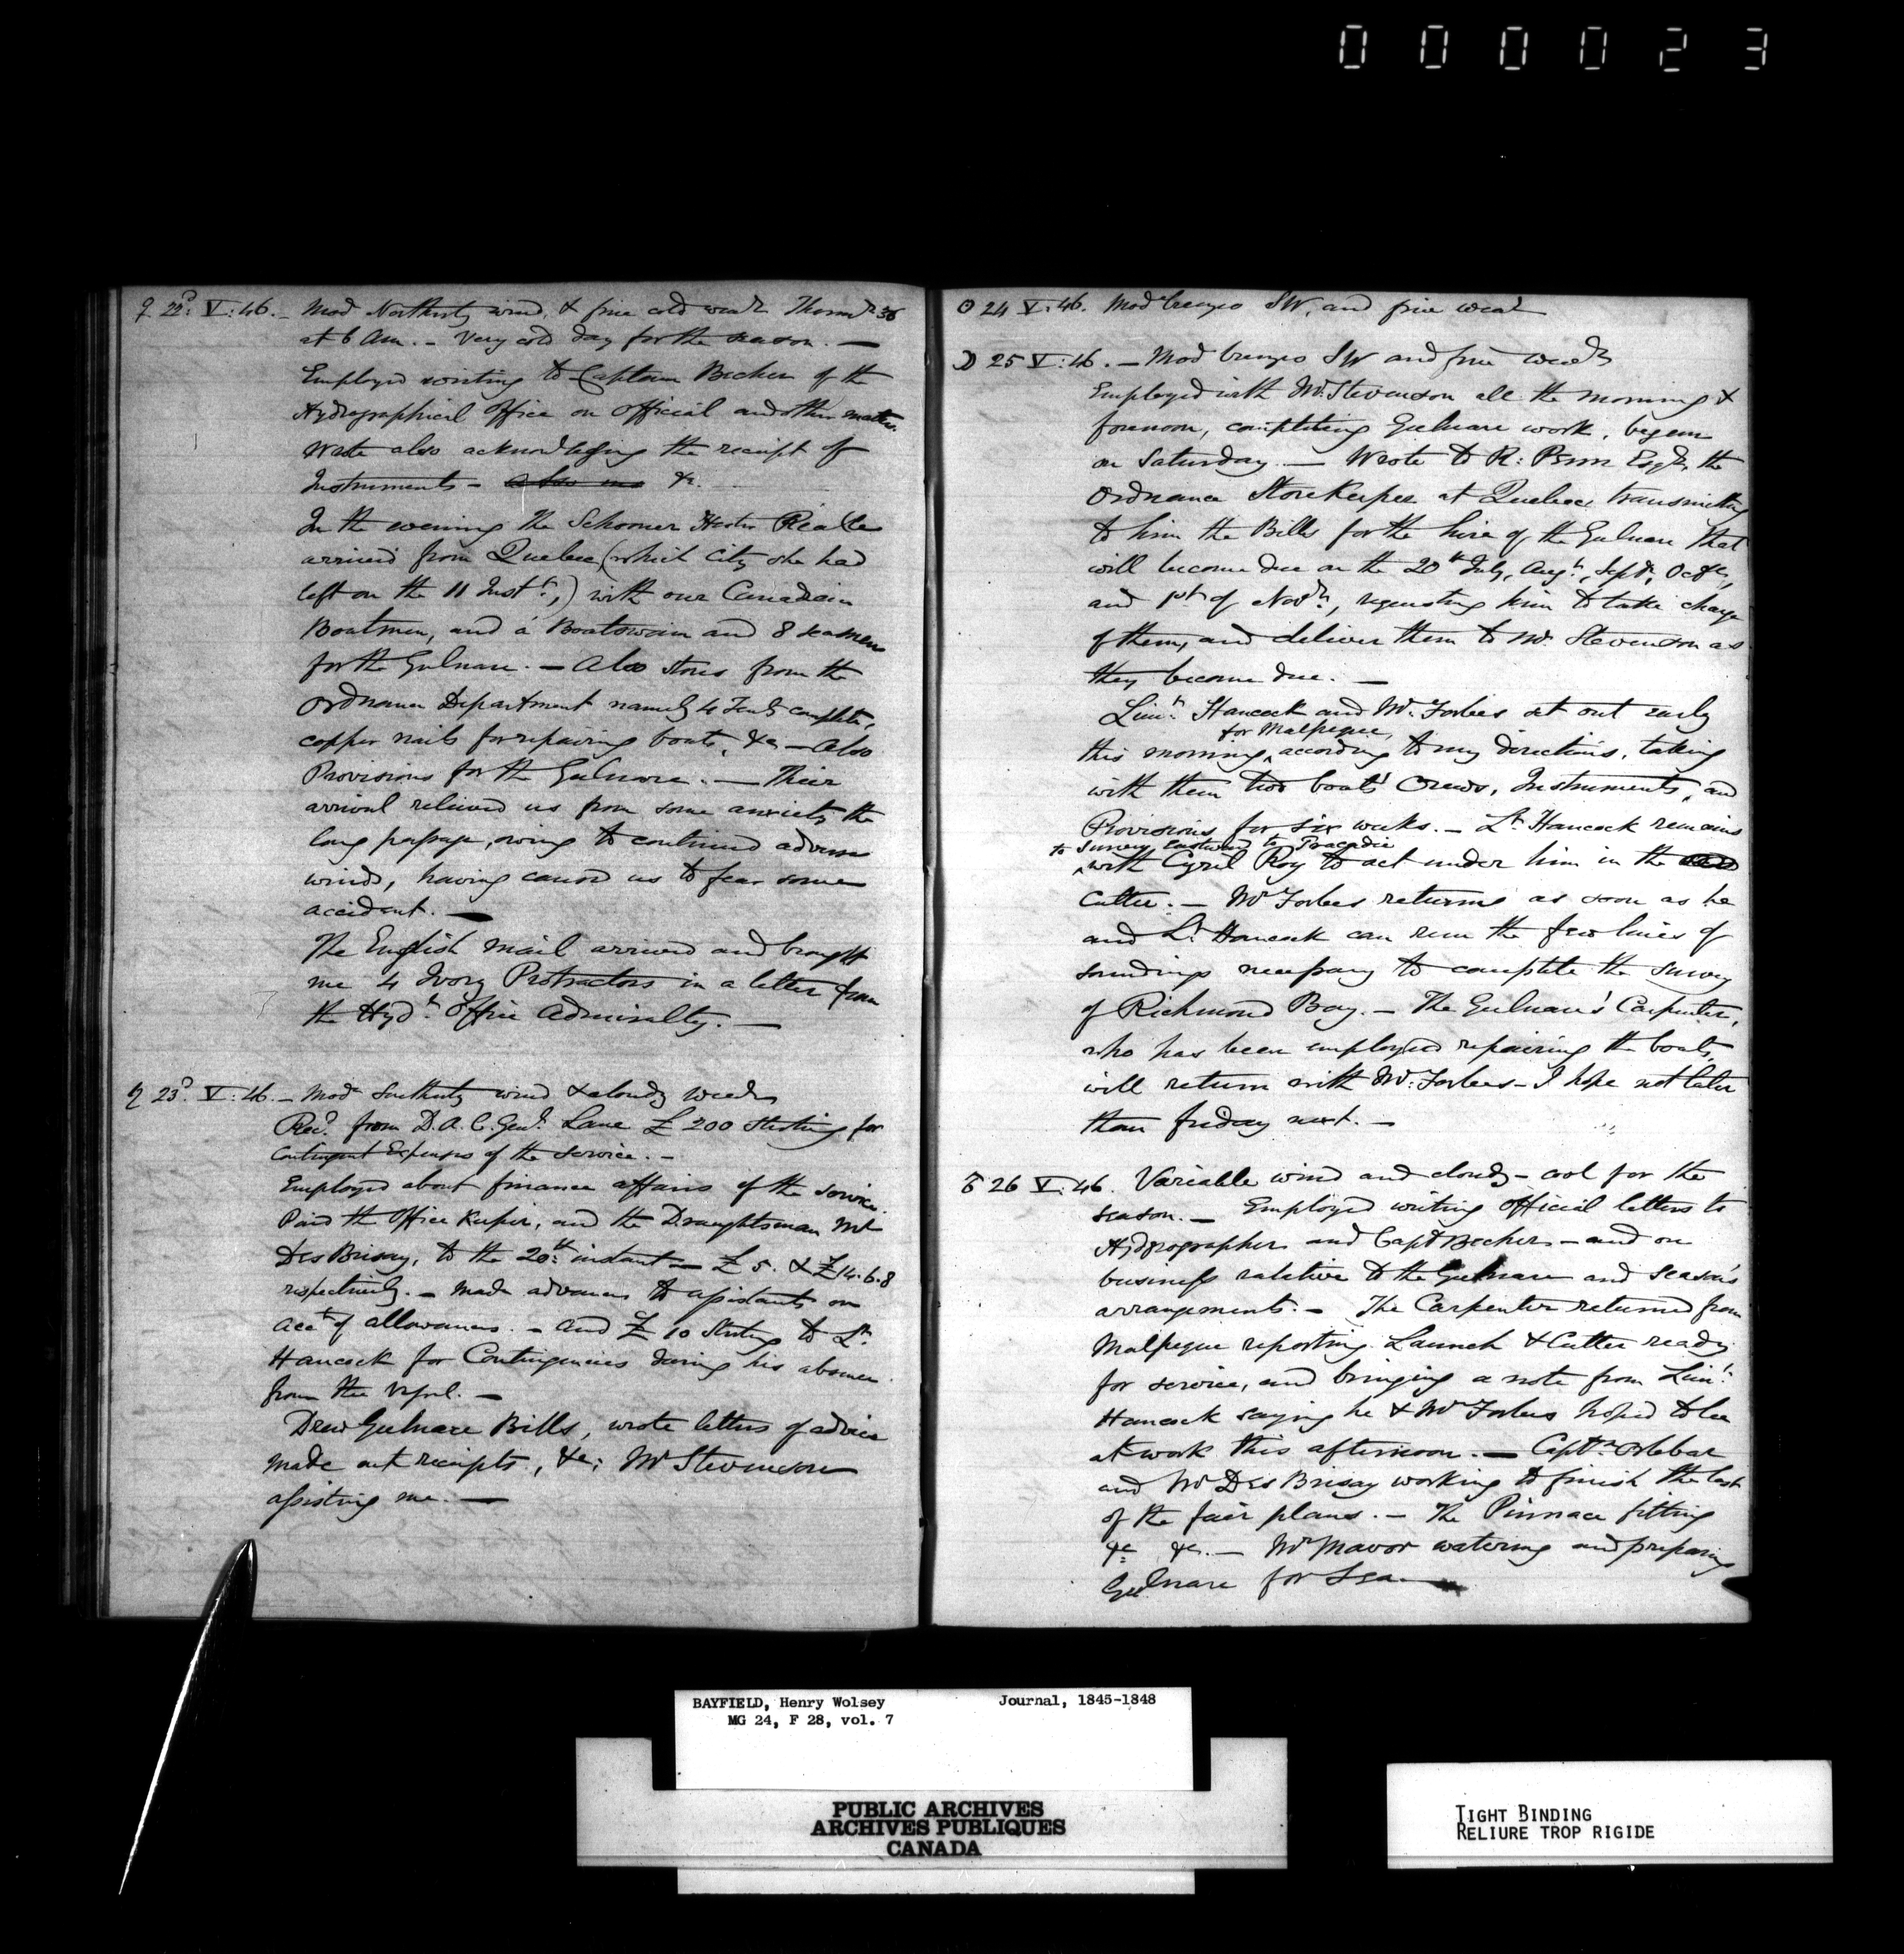 000023
♀ 22d: V: 46. – Mod Northerly wind, & fine cold weathr Thermr 36
at 6 Am. – Very cold day for the season. —
Employed writing to Captain Becher of the
Hydrographical Office on Official and other matters.
Wrote also acknowledging the receipt of
Instruments – &c.
In the evening the Schooner
arrived from Quebec (which City she had
left on the 11 Instt,) with our Canadian
Boatmen, and a Boatswain and 8 seamen
for the Gulnare. – Also stores from the
Ordnance Department namely 4 Tents complete,
copper nails for repairing boats, &c – Also
Provisions for the Gulnare. — Their
arrival relieved us from some anxiety, the
long passage, owing to continued adverse
winds, having caused us to fear some
accident. —
The English mail arrived and brought
me 4 Ivory Protractors in a letter from
the Hydc Office Admiralty. —
♄ 23d. V: 46. – Mod Southerly wind & cloudy weathr
Recd. from D. A. C. Genl. Lane £ 200 Sterling for
Contingent Expenses of the Service. –
Employed about finance affairs of the service.
Paid the Office Keeper, and the Draughtsman Mr
Des Brisay, to the 20th instant – £ 5. & £ 14.6.8
respectively. – Made advances to assistants on
acct of allowances. – and £ 10 Sterling to Lt.
Hancock for Contingencies during his absence
from the Vessel. –
Drew Gulnare Bills, wrote letters of advice
made out receipts, &c; Mr Stevenson
assisting me. —
☉ 24 V: 46. Mod breezes SW, and fine weathr
☽ 25 V: 46. – Mod breezes SW and fine weathr
Employed with Mr. Stevenson all the morning &
forenoon, completing Gulnare work, begun
on Saturday. — Wrote to R: Esqr, the
Ordnance StoreKeeper at Quebec, transmitting
to him the Bills for the hire of the Gulnare that
will become due on the 20th July, Augt., Septr, Octr,
and 1st of Novr, requesting him to take charge
of them, and deliver them to Mr. Stevenson as
they become due. —
Lieut. Hancock and Mr. Forbes set out early
for Malpeque,
this morning, according to my directions, taking
with them two boats' Crews, Instruments, and
Provisions for six weeks. – Lt. Hancock remains
to survey eastward to Tracadie
with Cyril Roy to act under him in the
Cutter. – Mr Forbes returns as soon as he
and Lt. Hancock can run the few lines of
soundings necessary to complete the survey
of Richmond Bay. – The Gulnare's Carpenter,
who has been employed repairing the boats,
will return with Mr. Forbes – I hope not later
than friday next. –
♂ 26 V: 46. Variable wind and cloudy – cool for the
season. – Employed writing Official letters to
Hydrographer and Capt Becher – and on
business relative to the Gulnare and season's
arrangements. – The Carpenter returned from
Malpeque reporting Launch & Cutter ready
for service, and bringing a note from Lieut.
Hancock saying he & Mr Forbes hoped to be
at work this afternoon. – Captn Orlebar
and Mr Des Brisay working to finish the last
of the fair plans. – The Pinnace fitting
&c &c. – Mr Mavor watering and preparing
Gulnare for Sea. —
BAYFIELD, Henry Wolsey Journal, 1845-1848
MG 24, F 28, vol. 7
PUBLIC ARCHIVES
ARCHIVES PUBLIQUES
CANADA
TIGHT BINDING
RELIURE TROP RIGIDE